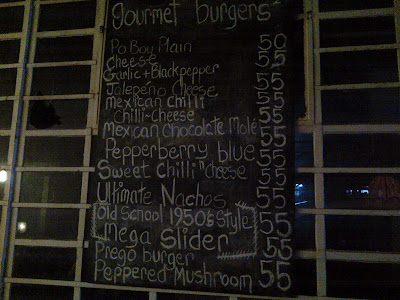 gourmet burgers
Po Boy Plain 50
Cheese 55
Garlic + Blackpepper 55
Jalepeño Cheese 55
Mexican Chilli 55
Chilli-Cheese 55
Mexican Chocolate Mole 55
Pepperberry blue 55
Sweet Chilli n cheese 55
Ultimate Nachos 55
Old School 1950s Style 55
Mega Slider 55
Prego burger 55
Peppered Mushroom 55